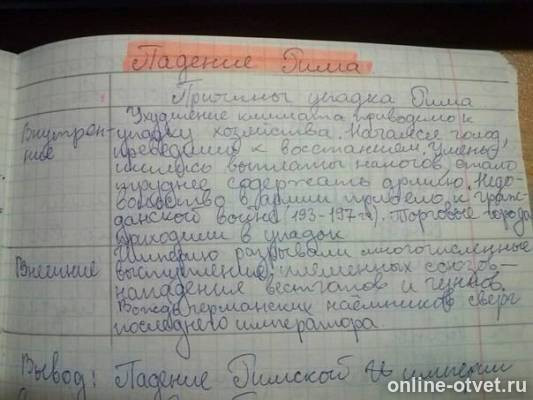 Падение Рима
Причины упадка Рима
Внутрен-
ние
Ухудшение климата приводило к
упадку хозяйства. Начался голод,
приведший к восстаниям, умень-
шились выплаты налогов, стало
труднее содержать армию. Недо-
вольство в армии привело к граж-
данской войне (193-197 гг). Торговые города
приходили в упадок
Внешние
Империю разрывали многочисленные
выступления племенных союзов-
нападения вестготов и гуннов.
Вождь германских наёмников сверг
последнего императора.
Вывод: Падение Римской империи
online-otvet.ru